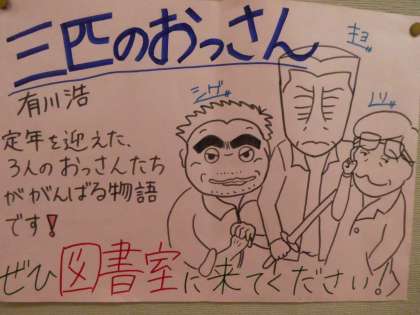 三匹のおっさん
有川浩
キヨ
シゲ
ノリ
定年を迎えた、
3人のおっさんたち
ががんばる物語
です!
ぜひ図書室に来てください!